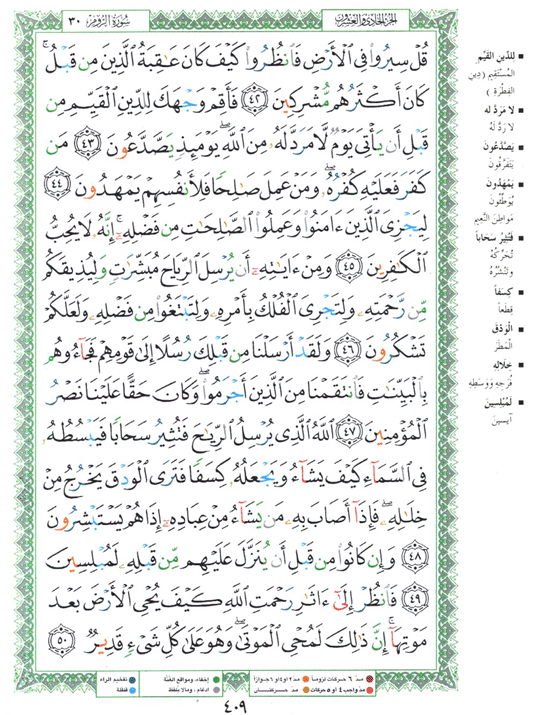 الجزء الحادي والعشرون
سورة الروم ٣٠
قُلْ سِيرُوا۟ فِى ٱلْأَرْضِ فَٱنظُرُوا۟ كَيْفَ كَانَ عَـٰقِبَةُ ٱلَّذِينَ مِن قَبْلُ ۚ
كَانَ أَكْثَرُهُم مُّشْرِكِينَ ٤٢ فَأَقِمْ وَجْهَكَ لِلدِّينِ ٱلْقَيِّمِ مِن
قَبْلِ أَن يَأْتِىَ يَوْمٌ لَّا مَرَدَّ لَهُۥ مِنَ ٱللَّهِ ۖ يَوْمَئِذٍ يَصَّدَّعُونَ ٤٣ مَن
كَفَرَ فَعَلَيْهِ كُفْرُهُۥ ۖ وَمَنْ عَمِلَ صَـٰلِحًا فَلِأَنفُسِهِمْ يَمْهَدُونَ ٤٤
لِيَجْزِىَ ٱلَّذِينَ ءَامَنُوا۟ وَعَمِلُوا۟ ٱلصَّـٰلِحَـٰتِ مِن فَضْلِهِۦٓ ۚ إِنَّهُۥ لَا يُحِبُّ
ٱلْكَـٰفِرِينَ ٤٥ وَمِنْ ءَايَـٰتِهِۦٓ أَن يُرْسِلَ ٱلرِّيَاحَ مُبَشِّرَٰتٍ وَلِيُذِيقَكُم
مِّن رَّحْمَتِهِۦ وَلِتَجْرِىَ ٱلْفُلْكُ بِأَمْرِهِۦ وَلِتَبْتَغُوا۟ مِن فَضْلِهِۦ وَلَعَلَّكُمْ
تَشْكُرُونَ ٤٦ وَلَقَدْ أَرْسَلْنَا مِن قَبْلِكَ رُسُلًا إِلَىٰ قَوْمِهِمْ فَجَآءُوهُم
بِٱلْبَيِّنَـٰتِ فَٱنتَقَمْنَا مِنَ ٱلَّذِينَ أَجْرَمُوا۟ ۖ وَكَانَ حَقًّا عَلَيْنَا نَصْرُ
ٱلْمُؤْمِنِينَ ٤٧ ٱللَّهُ ٱلَّذِى يُرْسِلُ ٱلرِّيَـٰحَ فَتُثِيرُ سَحَابًا فَيَبْسُطُهُۥ
فِى ٱلسَّمَآءِ كَيْفَ يَشَآءُ وَيَجْعَلُهُۥ كِسَفًا فَتَرَى ٱلْوَدْقَ يَخْرُجُ مِنْ
خِلَـٰلِهِۦ ۖ فَإِذَآ أَصَابَ بِهِۦ مَن يَشَآءُ مِنْ عِبَادِهِۦٓ إِذَا هُمْ يَسْتَبْشِرُونَ
٤٨ وَإِن كَانُوا۟ مِن قَبْلِ أَن يُنَزَّلَ عَلَيْهِم مِّن قَبْلِهِۦ لَمُبْلِسِينَ
٤٩ فَٱنظُرْ إِلَىٰٓ ءَاثَـٰرِ رَحْمَتِ ٱللَّهِ كَيْفَ يُحْىِ ٱلْأَرْضَ بَعْدَ
مَوْتِهَآ ۚ إِنَّ ذَٰلِكَ لَمُحْىِ ٱلْمَوْتَىٰ ۖ وَهُوَ عَلَىٰ كُلِّ شَىْءٍ قَدِيرٌ ٥٠
للدين القيّم
المستقيم (دين
الفطرة)
لا مردّ له
لا ردّ له
يصّدّعون
يتفرّقون
يمهدون
يوطّئون
مواطن النّعيم
فتثير سحاباً
تحرّكه
وتنشره
كسفاً
قِطعاً
الودق
المطر
خلاله
فُرَجه ووسطه
لمبلسين
آيسين
مدّ ٦ حركات لزوماً
مدّ ٢ أو ٤ أو ٦ جوازاً
إخفاء، ومواقع الغُنّة
تفخيم الراء
مدّ واجب ٤ أو ٥ حركات
مدّ حركتان
ادغام، ومالا يلفظ
قلقلة
٤٠٩